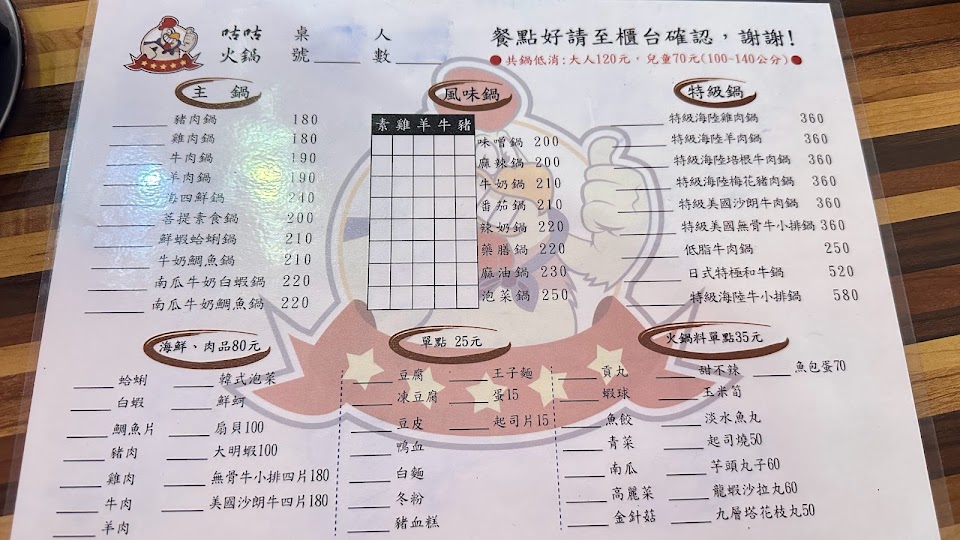 咕咕 桌 人
火鍋 號 數
餐點好請至櫃台確認，謝謝!
共鍋低消:大人120元，兒童70元(100~140公分)
主 鍋
豬肉鍋 180
雞肉鍋 180
牛肉鍋 190
羊肉鍋 190
四鮮鍋 240
菩提素食鍋 200
鮮蝦蛤蜊鍋 210
牛奶鯛魚鍋 210
南瓜牛奶白蝦鍋 220
南瓜牛奶鯛魚鍋 220
風味鍋
素 雞 羊 牛 豬
味噌鍋 200
麻辣鍋 200
牛奶鍋 210
番茄鍋 210
辣奶鍋 220
藥膳鍋 220
麻油鍋 230
泡菜鍋 250
特級鍋
特級海陸雞肉鍋 360
特級海陸羊肉鍋 360
特級海陸培根牛肉鍋 360
特級海陸梅花豬肉鍋 360
特級美國沙朗牛肉鍋 360
特級美國無骨牛小排鍋 360
低脂牛肉鍋 250
日式特極和牛鍋 520
特級海陸牛小排鍋 580
海鮮、肉品80元
蛤蜊 韓式泡菜
白蝦 鮮蚵
鯛魚片 扇貝100
豬肉 大明蝦100
雞肉 無骨牛小排四片180
牛肉 美國沙朗牛四片180
羊肉
單點 25元
豆腐 王子麵
凍豆腐 蛋15
豆皮 起司片15
鴨血
白麵
冬粉
豬血糕
火鍋料單點35元
貢丸 甜不辣 魚包蛋70
蝦球 玉米筍
魚餃 淡水魚丸
青菜 起司燒50
南瓜 芋頭丸子60
高麗菜 龍蝦沙拉丸60
金針菇 九層塔花枝丸50